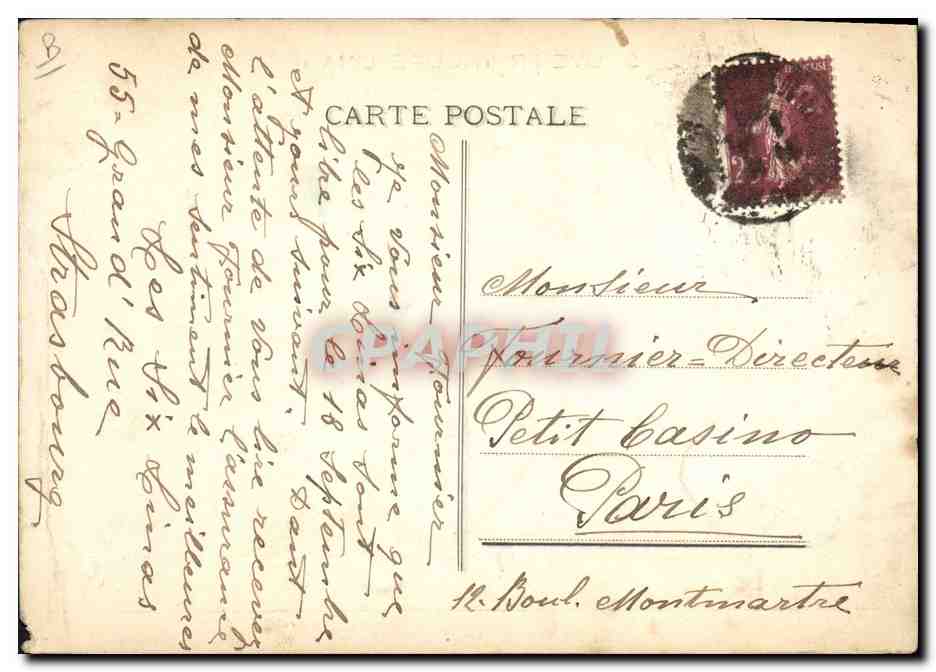 CARTE POSTALE
Monsieur Fournier
Je vous informe que
les six Linas sont
libre pour le 18 Septembre
et jours suivant. Dans
l'attente de vous lire recever
Monsieur Fournier l'assurance
de mes sentiment le meilleures
Les Six Linas
55 = Grand'Rue
Strasbourg
Monsieur
Fournier = Directeur
Petit Casino
Paris
12. Boul. Montmartre
CPAPHIL